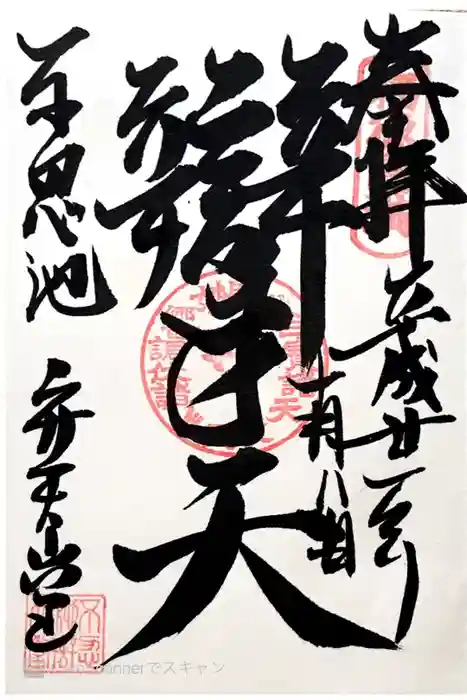 奉拝
平成廿一年
一月八日
辯才天
不忍池 弁天堂
Scannerでスキャン